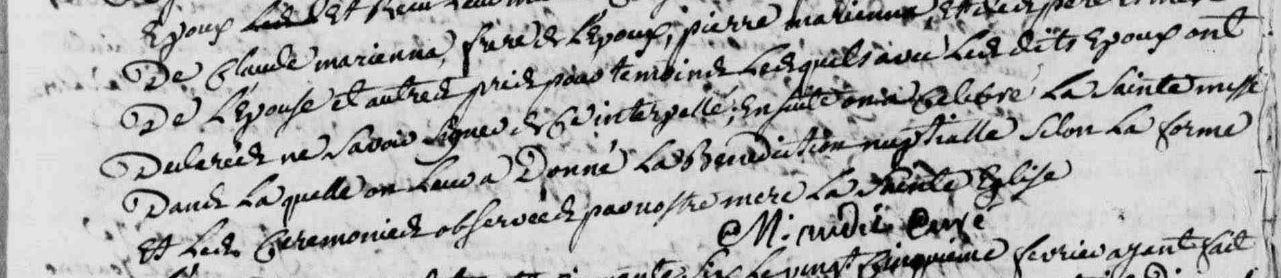 Epoux Les Et
De Claude marienna, frere de L'epoux, pierre marienna, Et de
De Lepouse et autres pries pour temoins Lesquels avec Les dits Epoux ont
Declarées ne savoir signer de ce interpellé; Ensuite on a Celebré La Sainte messe
Dans Laquelle on Leur a Donné La Benediction nuptialle selon La forme
Et Les Ceremonies observées par nostre mere La Sainte Eglise
Curé
Le vingt Cinquieme fevrier ayant fait